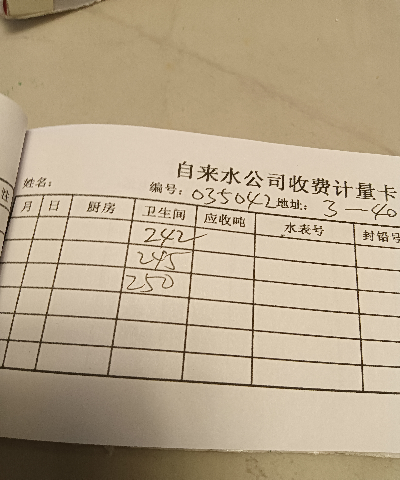 自来水公司收费计量卡
姓名： 编号：035042 地址：3—40
月 日 厨房 卫生间 应收吨 水表号 封铅号
242
245
250